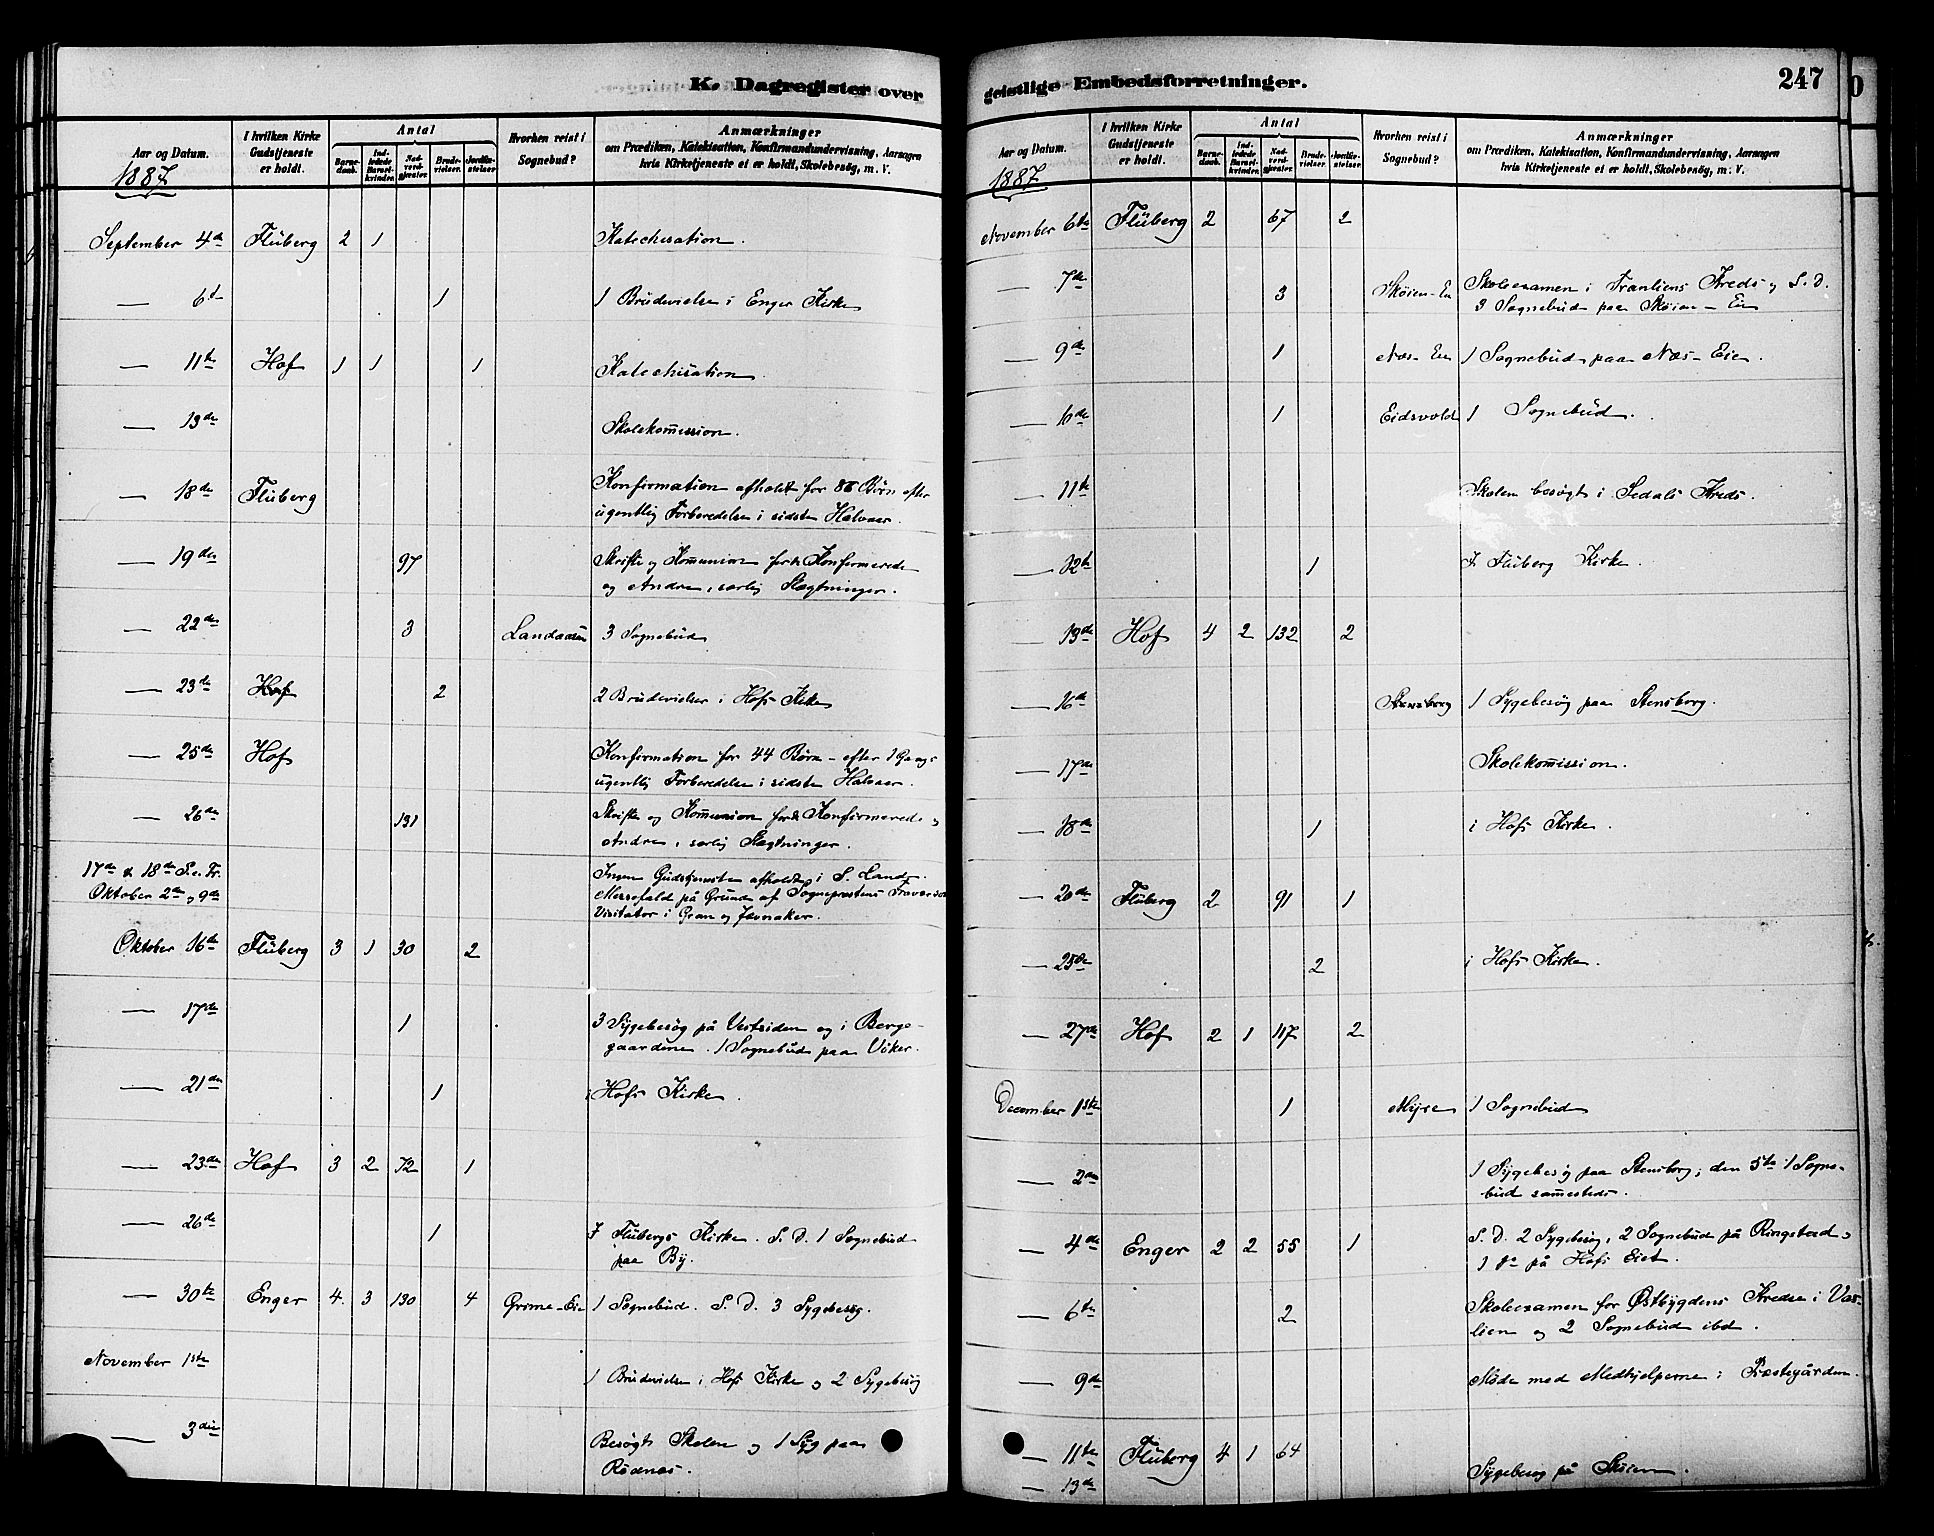 K. Dagregister over
Aar og Datum. I hvilken Kirke Gudstjeneste er holdt. Antal Barnedaab. Indledede Barselkvinder. Nadverdgjæster. Brudevielser. Jordfæstelser Hvorhen reist i Sognebud? Anmærkninger om Prædiken, Katekisation, Konfirmandundervisning, Aarsagen hvis Kirketjeneste ei er holdt, Skolebesög, m. V.
1887
September 4de Fluberg 2 1 Katechisation.
— 6te 1 1 Brudevielse i Enger Kirke
— 11te Hof 1 1 1 Katechisation.
— 13de Skolekommission.
— 18de Fluberg Konfirmation afholdt for Børn efter
ugentlig Forberedelse i sidste Halvaar.
— 19de 97 Skrifte og Kommunion for de Konfirmerede
og Andre, særlig Slægtninger.
— 22de 3 Landaasen 3 Sognebud
— 23de Hof 2 2 Brudevielser i Hofs Kirke
— 25de Hof Konfirmation for 44 Børn – efter 1 Gang
ugentlig Forberedelse i sidste Halvaar.
— 26de 131 Skrifte og Kommunion for de Konfirmerede og
Andre, særlig Slægtninger.
17de & 18de S. e. Tr.
Oktober 2de og 9de Ingen Gudstjeneste afholdt i S. Land.
Messefald på Grund af Sogneprestens Fravær som
Visitator i Gran og Jevnaker.
Oktober 16de Fluberg 3 1 30 2
— 17de 1 3 Sygebesøg på Vestsiden og i Berge-
gaardene. 1 Sognebud paa Viker.
— 21de 1 i Hofs Kirke.
— 23de Hof 3 2 72 1
— 26de 1 I Flubergs Kirke. S. D. 1 Sognebud
paa By.
— 30te Enger 4 3 130 4 Grime-Eie 1 Sognebud. S. D. 3 Sygebesøg.
November 1ste 1 Brudevielse i Hofs Kirke og 2 Sygebesøg
— 3die Besøgt Skolen og 1 Syg paa
Rødnæs.
geistlige Embedsforretninger. 247
Aar og Datum. I hvilken Kirke Gudstjeneste er holdt. Antal Barnedaab. Indledede Barselkvinder. Nadverdgjæster. Brudevielser. Jordfæstelser Hvorhen reist i Sognebud? Anmærkninger om Prædiken, Katekisation, Konfirmandundervisning, Aarsagen hvis Kirketjeneste ei er holdt, Skolebesög, m. V.
1887
November 6te Fluberg 2 67 2
— 7de 3 Skøien-Eie Skoleexamen i Tranliens Kreds, S. D.
3 Sognebud paa Skøien-Eie
— 9de 1 Næs-Eie 1 Sognebud paa Næs-Eie.
— 10de 1 Eidsvold 1 Sognebud.
— 11te Skolen besøgt i Sedals Kreds.
— 12te 1 I Fluberg Kirke.
— 13de Hof 4 2 132 2
— 16de Stensborg 1 Sygebesøg paa Stensborg.
— 17de Skolekommission.
— 18de 1 i Hofs Kirke.
— 20de Fluberg 2 91 1
— 25de 2 i Hofs Kirke.
— 27de Hof 2 1 117 2
December 1ste 1 Myre 1 Sognebud
— 2den 1 Sygebesøg paa Stensborg; den 5te 1 Sogne-
bud sammesteds.
— 4de Enger 2 2 55 1 S. D. 2 Sygebesøg, 2 Sognebud på Ringstad,
1 do på Hofs Eiet.
— 6te 2 Skoleexamen for Østbygdens Kredse i
og 2 Sognebud ibd.
— 9de Møde med Medhjelperne i Præstegården.
— 11te Fluberg 4 1 64
— 13de Sygebesøg på Skøien.